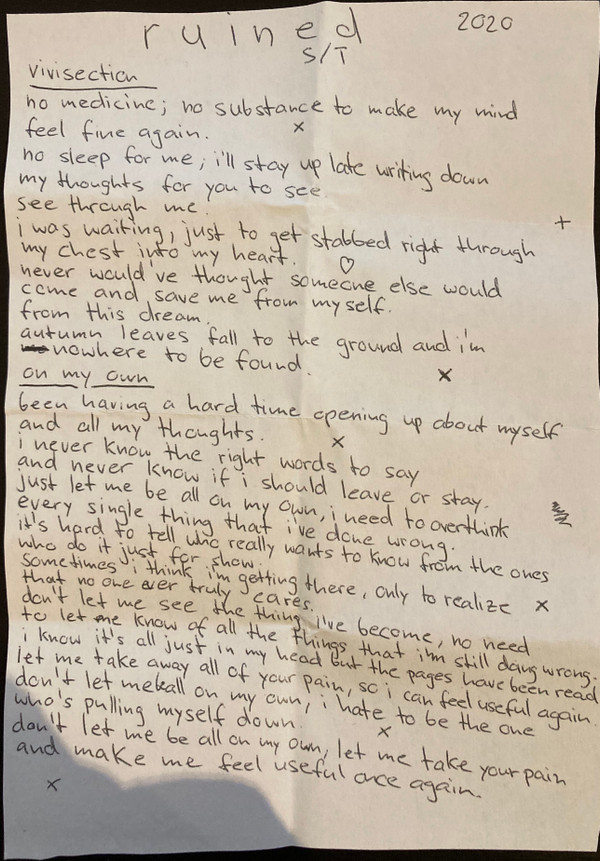 ruined 2020
S/T
vivisection
no medicine; no substance to make my mind
feel fine again. x
no sleep for me; i'll stay up late writing down
my thoughts for you to see.
see through me. +
i was waiting, just to get stabbed right through
my chest into my heart. ♡
never would've thought someone else would
come and save me from myself.
from this dream.
autumn leaves fall to the ground and i'm
nowhere to be found. x
on my own
been having a hard time opening up about myself
and all my thoughts. x
i never know the right words to say
and never know if i should leave or stay.
just let me be all on my own, i need to overthink
every single thing that i've done wrong.
it's hard to tell who really wants to know from the ones
who do it just for show.
sometimes i think i'm getting there, only to realize x
that no one ever truly cares.
don't let me see the thing i've become, no need
to let me know of all the things that i'm still doing wrong.
i know it's all just in my head but the pages have been read
let me take away all of your pain, so i can feel useful again.
don't let me be all on my own, i hate to be the one
who's pulling myself down. x
don't let me be all on my own, let me take your pain
and make me feel useful once again.
x